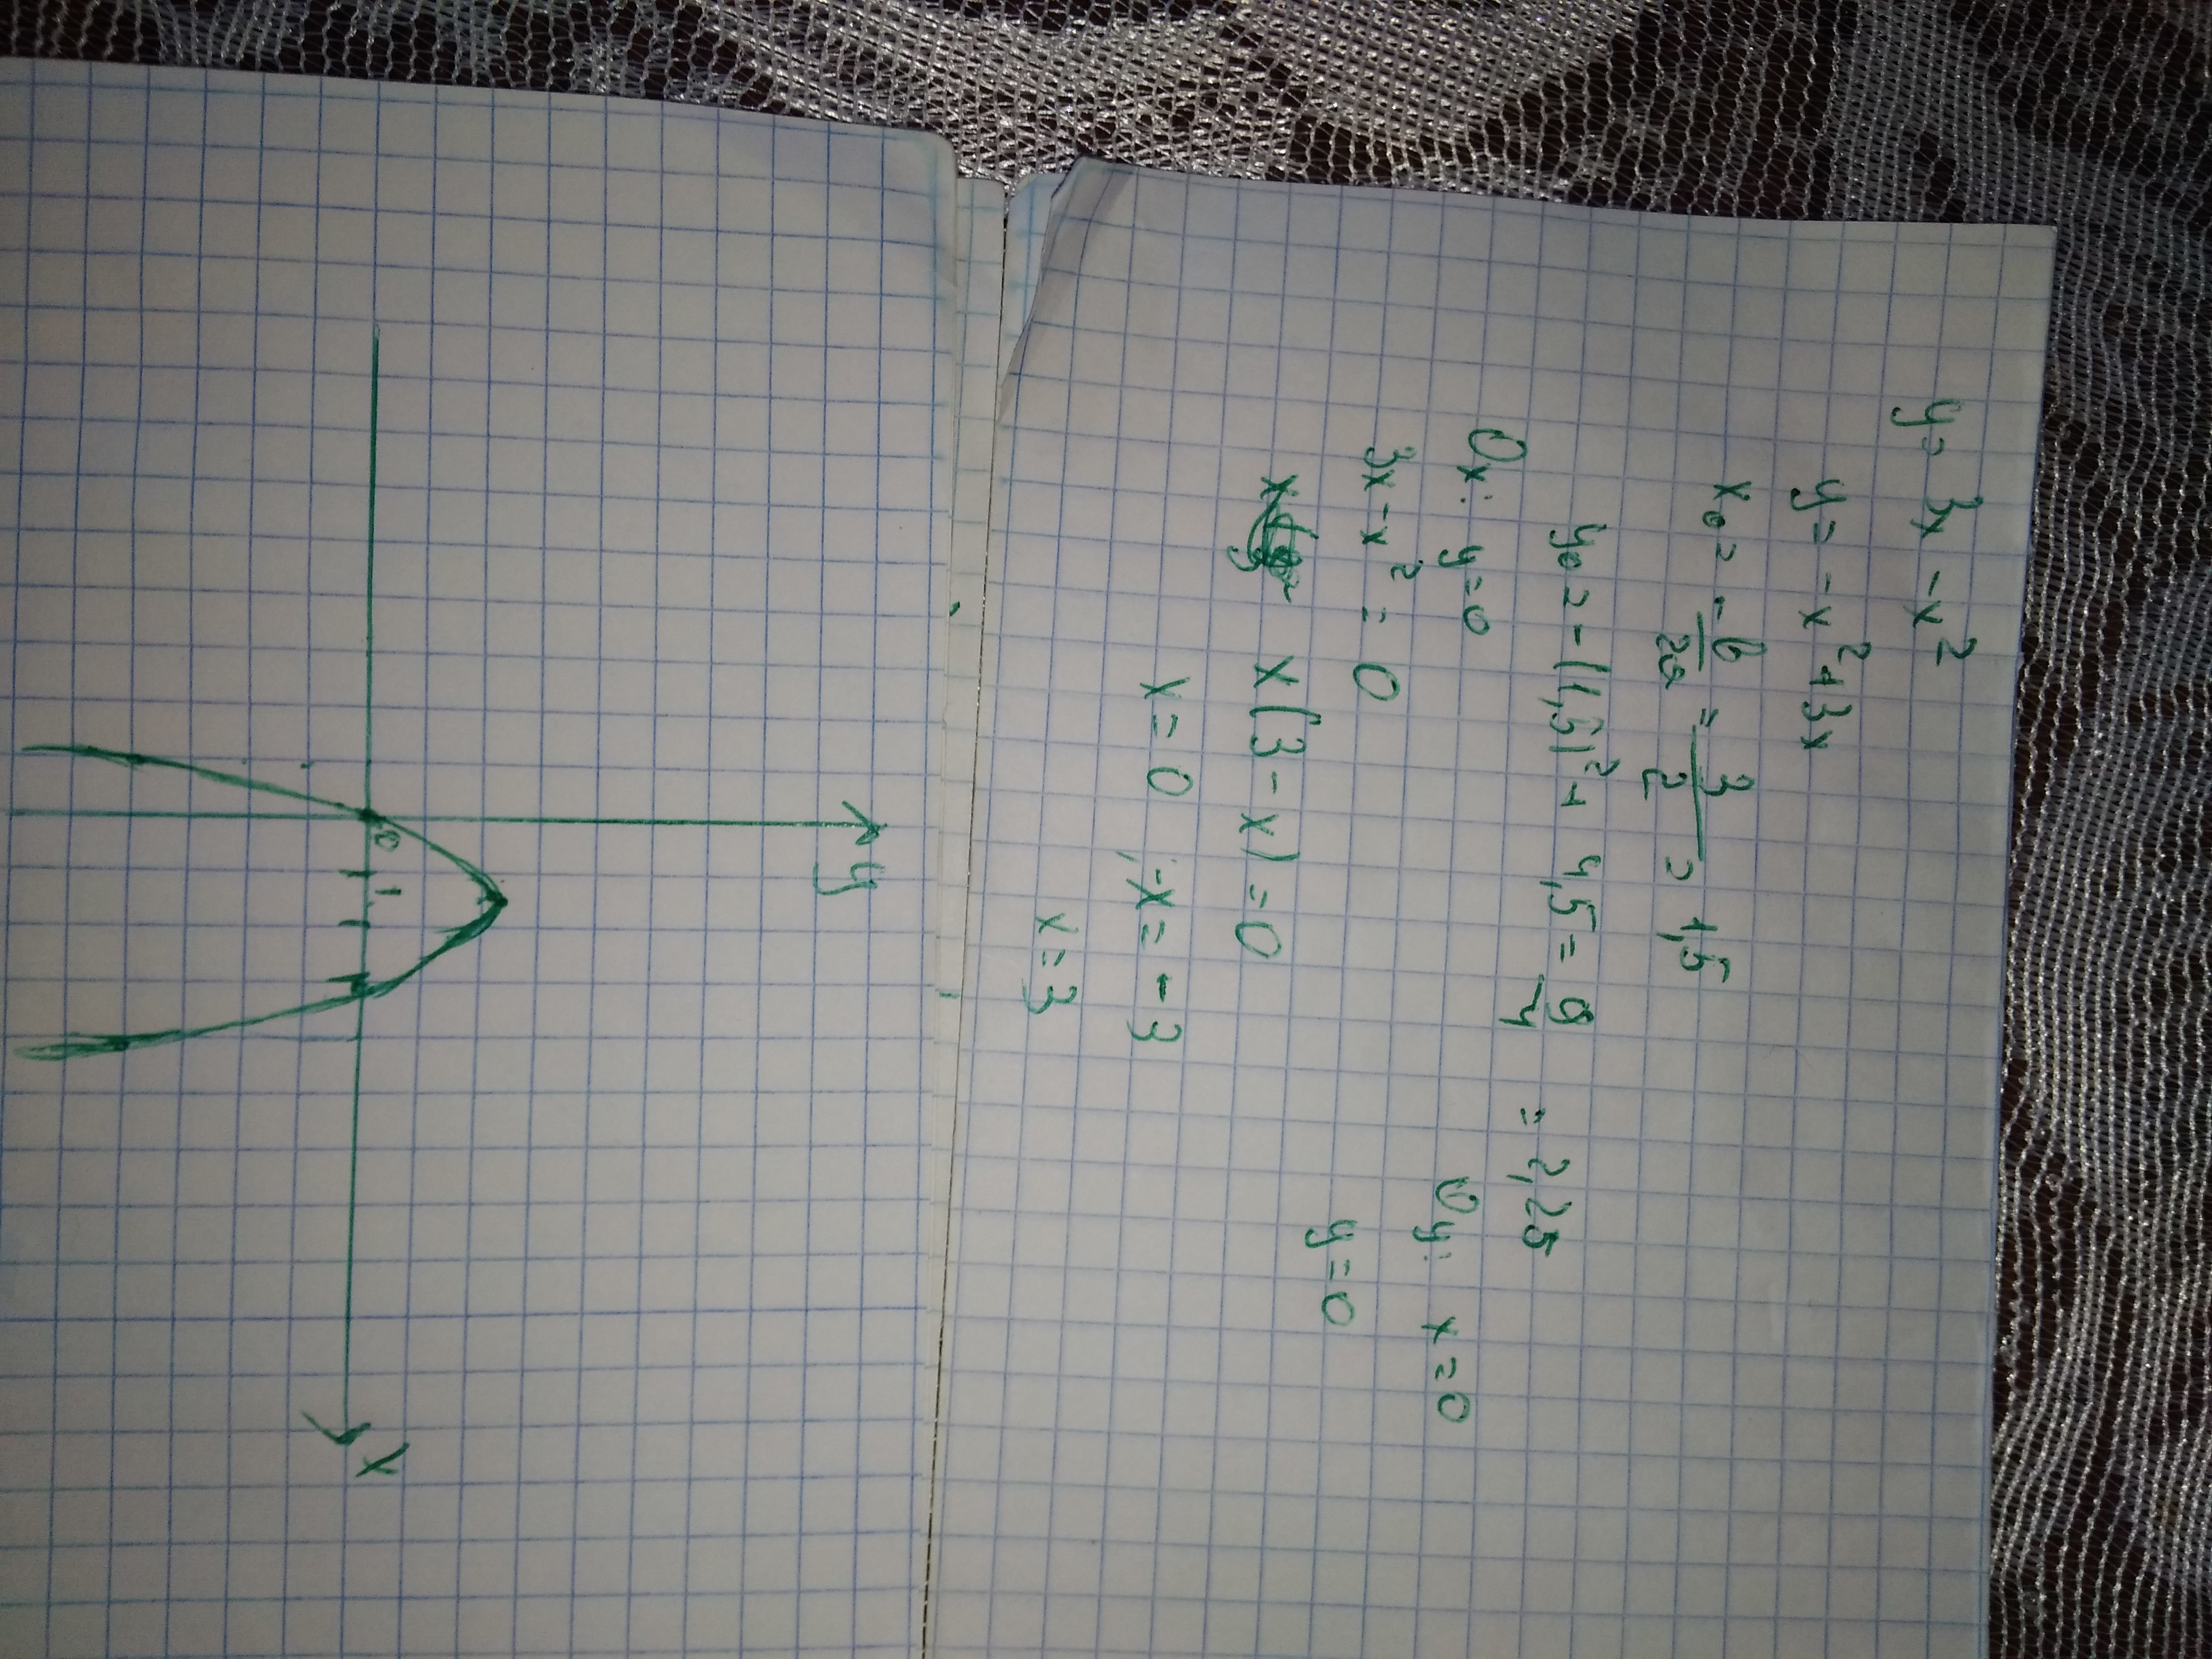 y = 3x - x²
y = -x² + 3x
x₀ = -b/2a = 3/2 = 1,5
y₀ = -(1,5)² + 4,5 = 9/4 = 2,25
Ox: y = 0
3x - x² = 0
x(3 - x) = 0
x = 0 ; -x = -3
x = 3
Oy: x = 0
y = 0
y
0
1
x